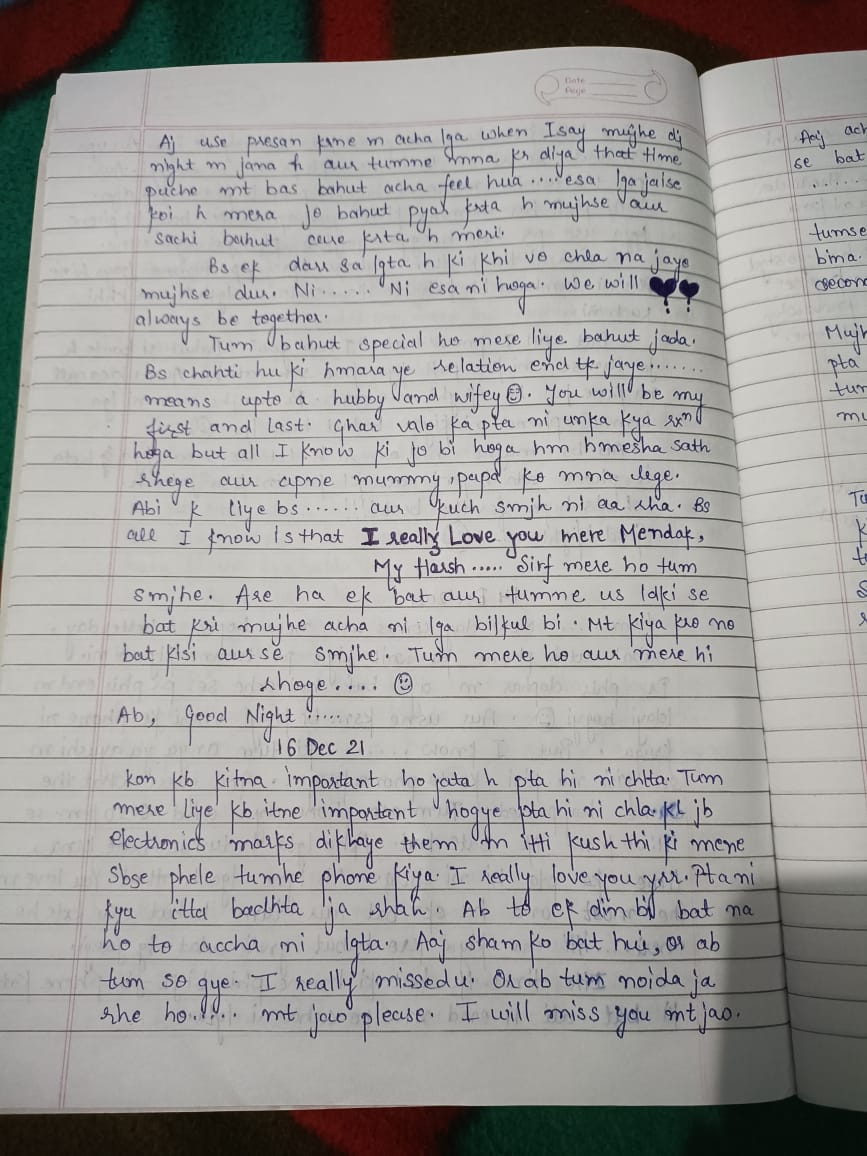 Date
Page
Aj use presan krne m acha lga when I say mujhe dj
night m jana h aur tumne mna kr diya that time
puche mt bas bahut acha feel hua .... esa lga jaise
koi h mera jo bahut pyar krta h mujhse aur
sachi bahut care krta h meri.
Bs ek darr sa lgta h ki khi vo chla na jaye
mujhse dur. Ni ..... Ni esa ni hoga. We will
always be together.
Tum bahut special ho mere liye bahut jada.
Bs chahti hu ki hmara ye relation end tk jaye.......
means upto a hubby and wifey☺. You will be my
first and last. Ghar valo ka pta ni unka kya rxn
hoga but all I know ki jo bi hoga hm hmesha sath
rhege aur apne mummy, papa ko mna lege.
Abi k liye bs ...... aur kuch smjh ni aa rha. Bs
all I know is that I really Love you mere Mendak,
My Harsh ..... Sirf mere ho tum
smjhe. Are ha ek bat aur tumne us ldki se
bat kri mujhe acha ni lga bilkul bi. Mt kiya kro no
bat kisi aur se smjhe. Tum mere ho aur mere hi
rhoge .... ☺
Ab, Good Night .....
16 Dec 21
Kon kb kitna important ho jata h pta hi ni chlta. Tum
mere liye kb itne important hogye pta hi ni chla. kl jb
electronics marks dikhaye them m itti kush thi ki mene
sbse phele tumhe phone kiya. I really love you yrr. Pta ni
kyu itta badhta ja rhah. Ab to ek din bi bat na
ho to accha ni lgta. Aaj sham ko bat hui, or ab
tum so gye. I really missed u. Or ab tum noida ja
rhe ho..... mt jao please. I will miss you mt jao.
Aaj ach
se bat
......
tumse
bina.
second
Mujh
pta
tur
mu
Tu
k